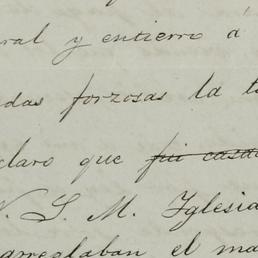 ral y entierro á
das forzosas la
claro que fui casad
N. S. M. Yglesia
arreglaban el ma